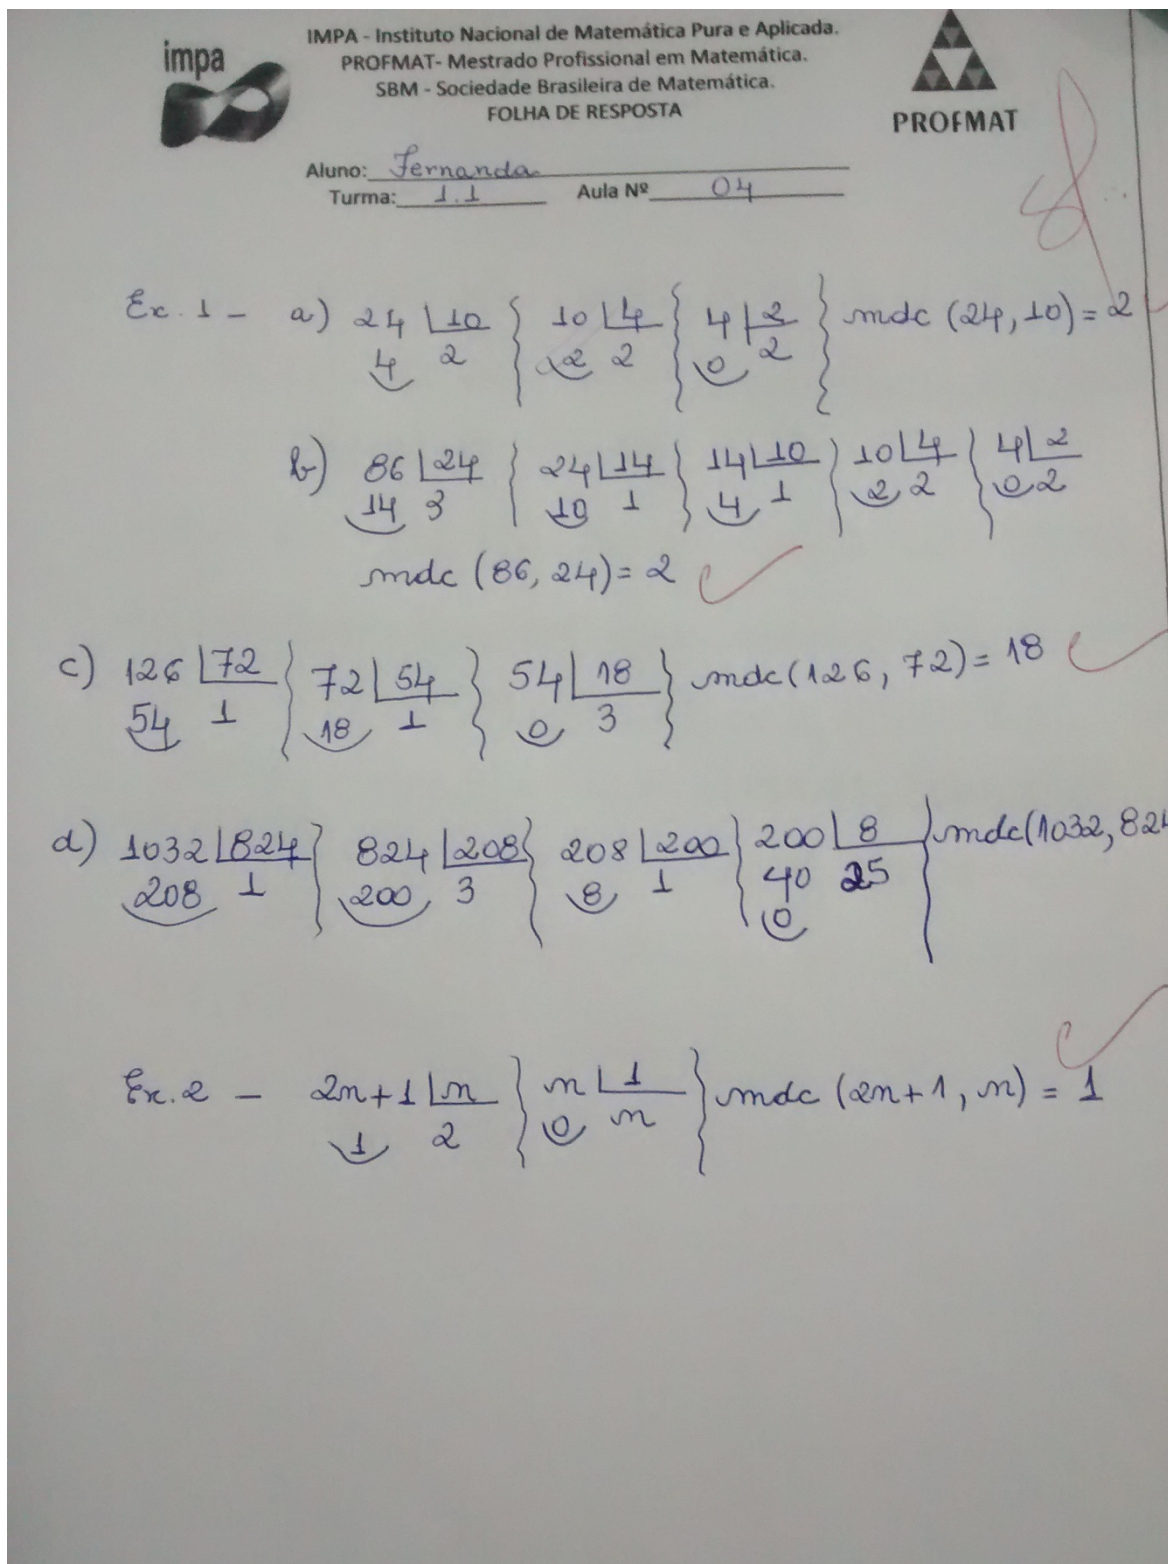 impa
IMPA - Instituto Nacional de Matemática Pura e Aplicada.
PROFMAT- Mestrado Profissional em Matemática.
SBM - Sociedade Brasileira de Matemática.
FOLHA DE RESPOSTA
PROFMAT
Aluno: Fernanda
Turma: 1.1 Aula Nº 04
Ex. 1 - a) 24 10 10 4 4 2 mdc (24, 10) = 2
4 2 2 2 0 2
b) 86 24 24 14 14 10 10 4 4 2
14 3 10 1 4 1 2 2 0 2
mdc (86, 24) = 2
c) 126 72 72 54 54 18 mdc (126, 72) = 18
54 1 18 1 0 3
d) 1032 824 824 208 208 200 200 8 mdc (1032, 824
208 1 200 3 8 1 40 25
0
Ex. 2 - 2n+1 n n 1 mdc (2n+1, n) = 1
1 2 0 n